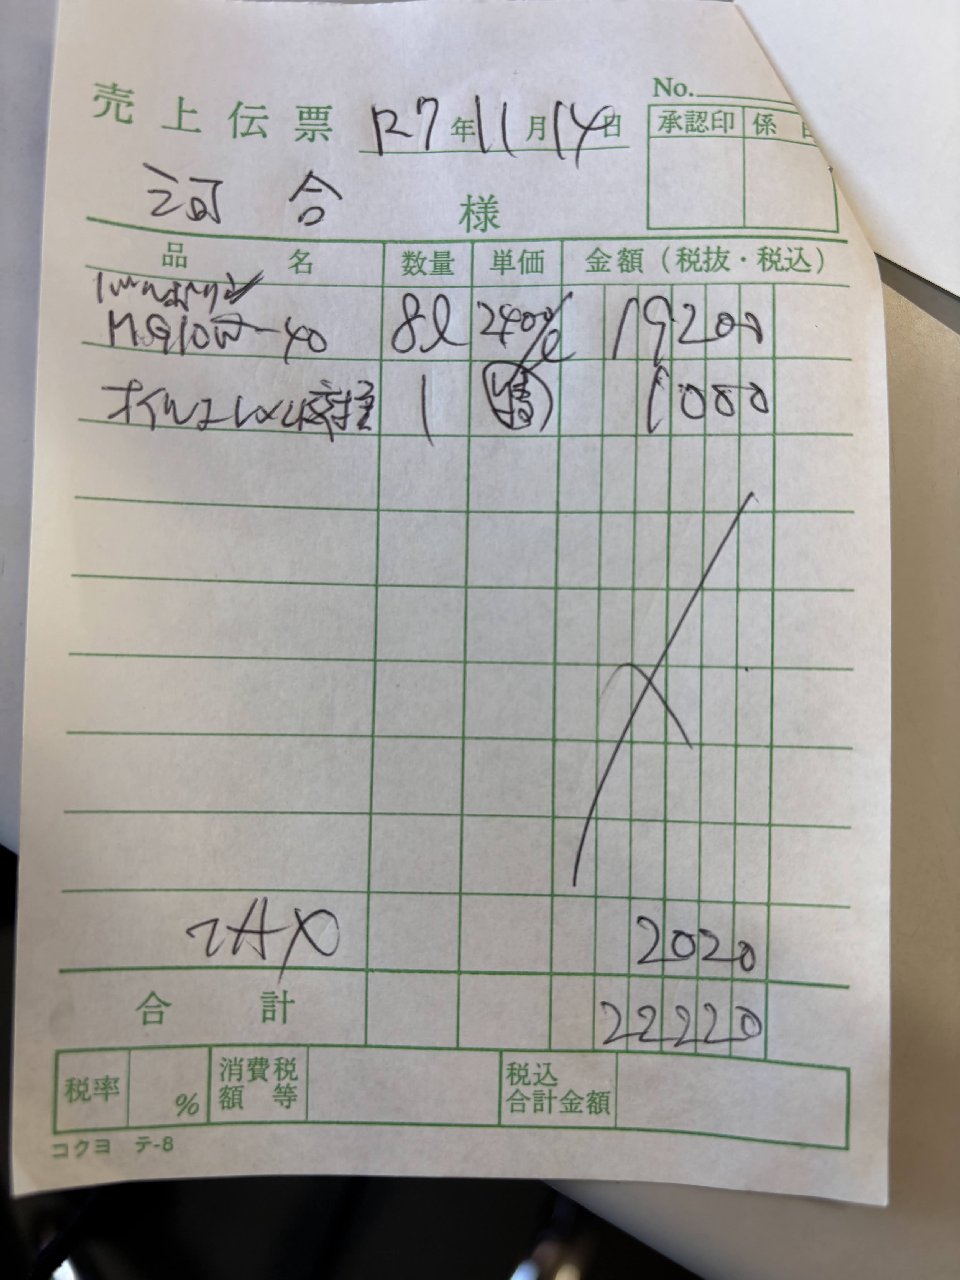 No.
売上伝票 R7年11月14日
承認印 係
河合 様
品名 数量 単価 金額（税抜・税込）
10W-40 8l 2400/l 19200
オイルエレメント交換 1 1000
TAX 2020
合計 22220
税率 % 消費税額等 税込合計金額
コクヨ テ-8